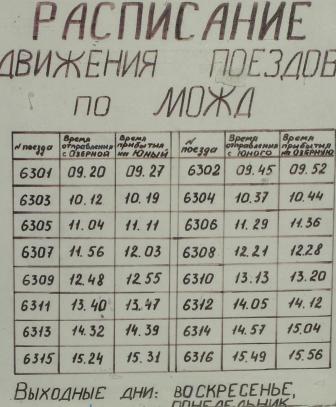 РАСПИСАНИЕ
ДВИЖЕНИЯ ПОЕЗДОВ
ПО МОЖД
N поезда Время отправления с Озерной Время прибытия на Юный N поезда Время отправления с Юного Время прибытия на Озерную
6301 09.20 09.27 6302 09.45 09.52
6303 10.12 10.19 6304 10.37 10.44
6305 11.04 11.11 6306 11.29 11.36
6307 11.56 12.03 6308 12.21 12.28
6309 12.48 12.55 6310 13.13 13.20
6311 13.40 13.47 6312 14.05 14.12
6313 14.32 14.39 6314 14.57 15.04
6315 15.24 15.31 6316 15.49 15.56
ВЫХОДНЫЕ ДНИ: ВОСКРЕСЕНЬЕ,
ПОНЕДЕЛЬНИК